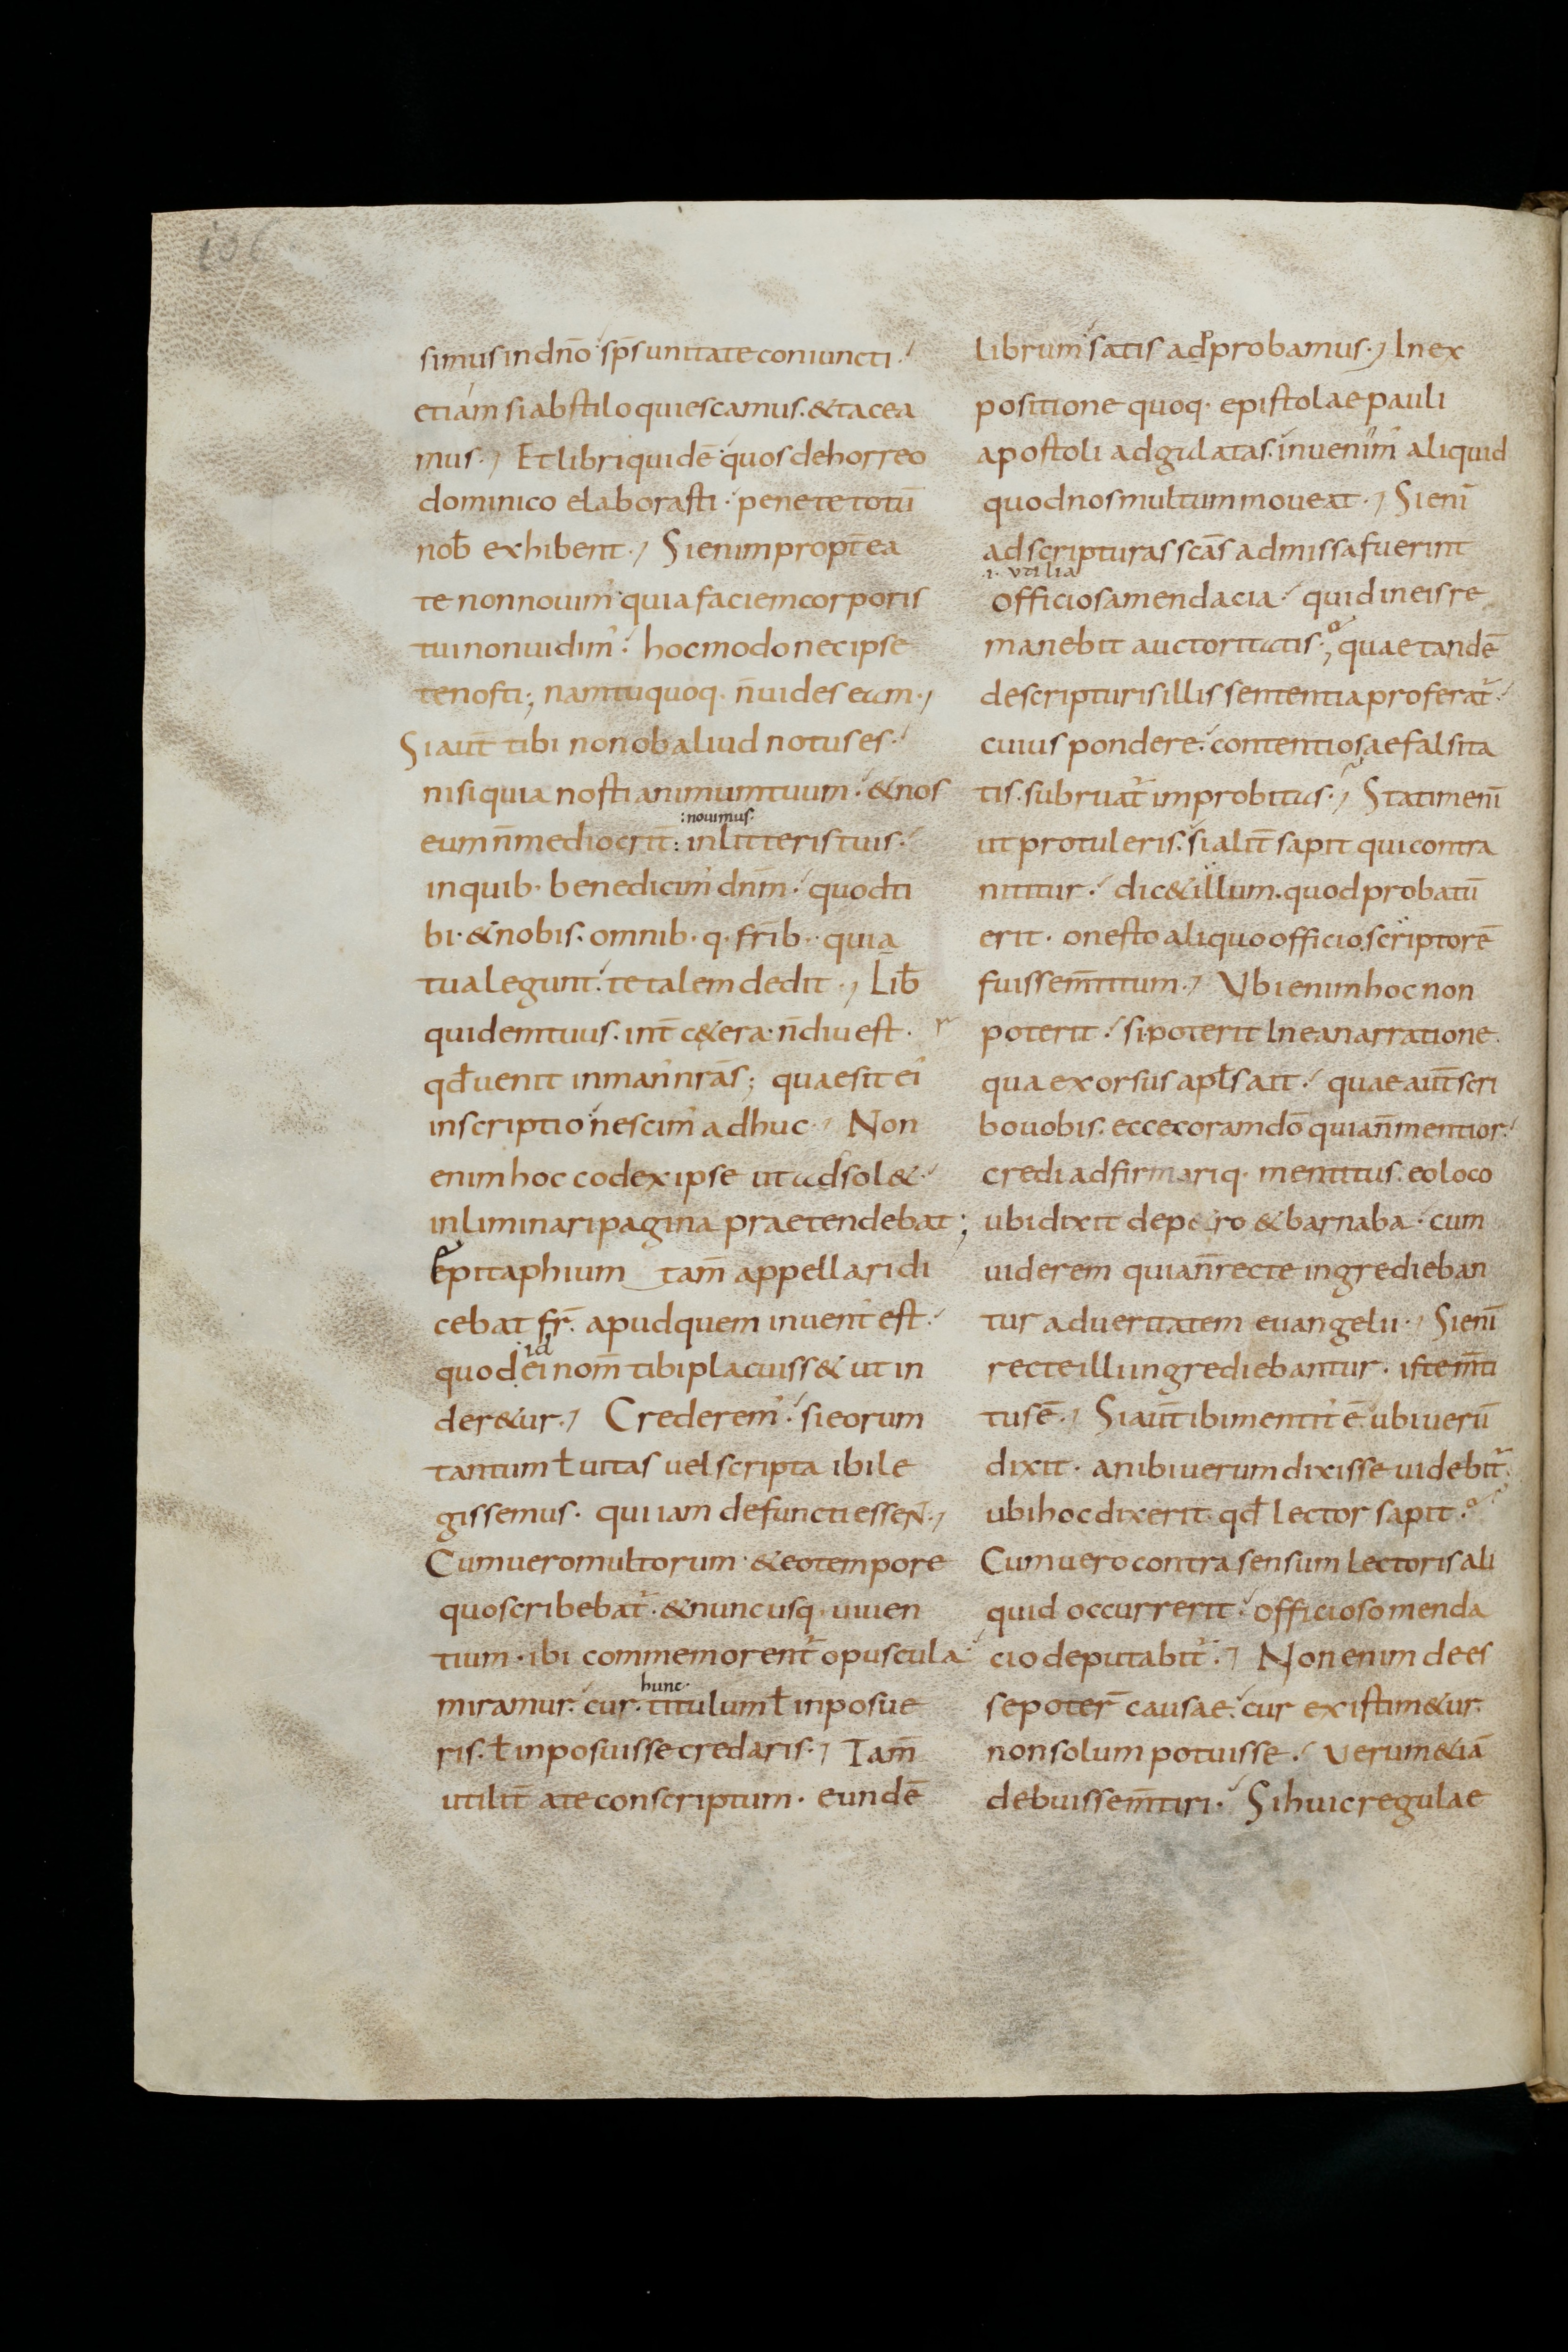 106
simus in dn̄o sp̄s unitate coniuncti
etiam si ab stilo quiescamus. & tacea
mus. Et libri quidē quos de horreo
dominico elaborasti · pene te totū
nob̄ exhibent. Si enim propt̄ ea
te non nouim' quia faciem corporis
tui non uidim' hoc modo nec ipse
te nosti; nam tu quoq. n̄ uides eam.
Si aut̄ tibi non ob aliud notus es.
nisi quia nosti animum tuum. & nos
: nouimus.
eum n̄ mediocrit̄: in litteris tuis.
in quib. benedicim' dn̄m. quod ti
bi. & nobis. omnib. q. fr̄ib. qui a
tua legunt. te talem dedit. Lib̄
quidem tuus. int̄ c&era. n̄ diu est. r
qđ uenit in man' nrās; quae sit ei
inscriptio nescim' adhuc. Non
enim hoc codex ipse ut adsol&.
in liminari pagina praetendebat;
Epitaphium tam̄ appellari di
cebat fr̄. apud quem inuent' est.
id
quod ei nom̄ tibi placuiss& ut in
der&ur. Crederem'. si eorum
tantum ł uitas uel scripta ibi le
gissemus. qui iam defuncti essent.
Cum uero multorum. & eo tempore
quo scribebat̄. & nunc usq. uiuen
tium. ibi commemorent̄ opuscula
hunc.
miramur. cur. titulum ł inposue
ris. ł inposuisse credaris. Tam̄
utilit̄ a te conscriptum. eundē
librum satis adprobamus. In ex
p
positione quoq. epistolae pauli
apostoli ad galatas. inuenim' aliquid
quod nos multum moueat. Si enī
ad scripturas scās admissa fuerint
.i. utilia
officiosa mendacia. quid in eis re
manebit auctoritatis. quae tandē
de scripturis illis sententia proferat̄.
cuius pondere. contentiosae falsita
tis. subruat̄ improbitas. Statim enī
ut protuleris. si alit̄ sapit qui contra
nititur. dic& illum. quod probatū
erit. onesto aliquo officio. scriptorē
fuisse m̄titum. Ubi enim hoc non
poterit. si poterit In ea narratione.
qua exorsus apłs ait. quae aut̄ scri
bo uobis. ecce coram dō quia n̄ mentior.
credi adfirmariq. mentitus. eo loco
ubi dixit de petro & barnaba. cum
uiderem quia n̄ recte ingredieban
tur ad ueritatem euangelii. Si enī
recte illi ingrediebantur. iste m̄ti
tus ē. Si aut̄ ibi mentit' ē. ubi uerū
dixit. an ibi uerum dixisse uidebit̄.
ubi hoc dixerit. qđ lector sapit.
Cum uero contra sensum lectoris ali
quid occurrerit. officioso menda
cio deputabit̄. Non enim dees
se poter̄ causae. cur existim&ur.
non solum potuisse. uerum &iā
debuisse m̄tiri. Si huic regulae